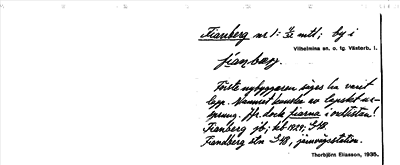 Fianberg nr 1: 1/32 mtl; by i
Vilhelmina sn. o. tg. Västerb. l.
fíanbærg.
Förste nybyggaren säges ha varit
lapp. Namnet kanske av lapskt ur-
sprung. Jfr dock fiarna i ordlistan!
Fianberg jb; kb 1929; GSB.
Fiandberg stn GSB, järnvägsstation.
Thorbjörn Eliasson, 1935.